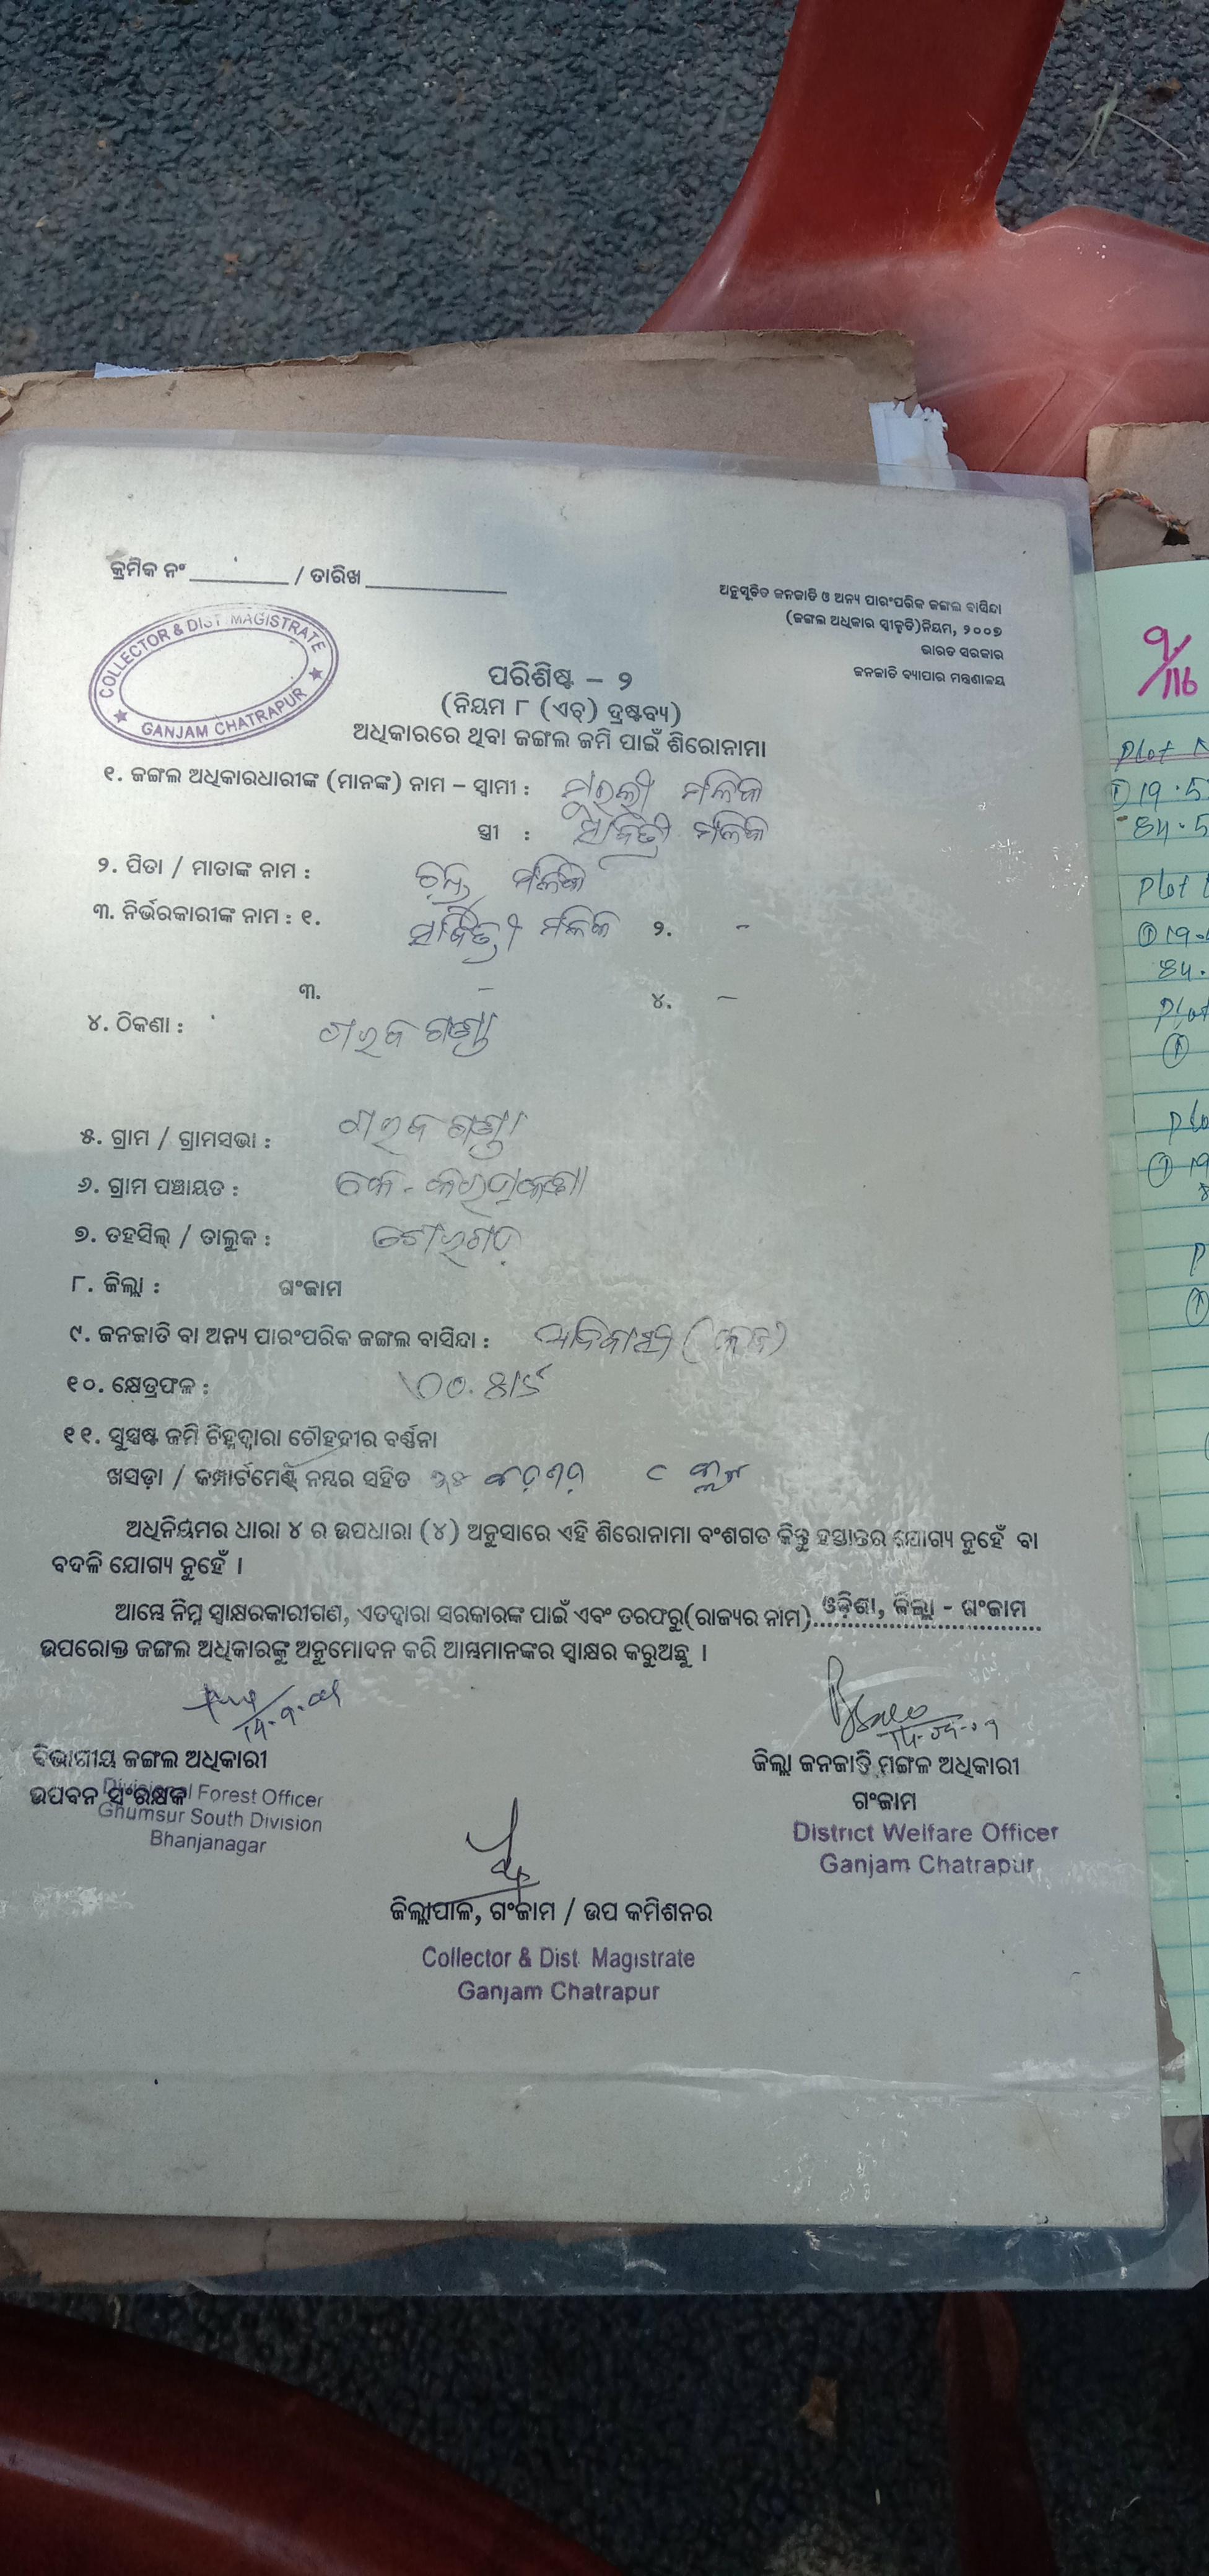 କ୍ରମିକ ନଂ ________ / ତାରିଖ ____________
ଅନୁସୂଚିତ ଜନଜାତି ଓ ଅନ୍ୟ ପାରଂପରିକ ଜଙ୍ଗଲ ବାସିନ୍ଦା
(ଜଙ୍ଗଲ ଅଧିକାର ସ୍ୱୀକୃତି)ନିୟମ, ୨୦୦୭
ଭାରତ ସରକାର
ଜନଜାତି ବ୍ୟାପାର ମନ୍ତ୍ରଣାଳୟ
COLLECTOR & DIST MAGISTRATE
GANJAM CHATRAPUR
ପରିଶିଷ୍ଟ – ୨
(ନିୟମ ୮ (ଏଚ୍) ଦ୍ରଷ୍ଟବ୍ୟ)
ଅଧିକାରରେ ଥିବା ଜଙ୍ଗଲ ଜମି ପାଇଁ ଶିରୋନାମା
୧. ଜଙ୍ଗଲ ଅଧିକାରଧାରୀଙ୍କ (ମାନଙ୍କ) ନାମ – ସ୍ୱାମୀ : ମୁରଲୀ ମଳିକ
ସ୍ତ୍ରୀ : ସାବିତ୍ରୀ ମଳିକ
୨. ପିତା / ମାତାଙ୍କ ନାମ : ମଳିକ
୩. ନିର୍ଭରକାରୀଙ୍କ ନାମ : ୧. ସାବିତ୍ରୀ ମଳିକ ୨. -
୩. - ୪. -
୪. ଠିକଣା :
୫. ଗ୍ରାମ / ଗ୍ରାମସଭା :
୬. ଗ୍ରାମ ପଞ୍ଚାୟତ :
୭. ତହସିଲ୍ / ତାଲୁକ : ସୋରଗଡ଼
୮. ଜିଲ୍ଲା : ଗଂଜାମ
୯. ଜନଜାତି ବା ଅନ୍ୟ ପାରଂପରିକ ଜଙ୍ଗଲ ବାସିନ୍ଦା : ଆଦିବାସୀ
୧୦. କ୍ଷେତ୍ରଫଳ :
୧୧. ସୁସ୍ପଷ୍ଟ ଜମି ଚିହ୍ନଦ୍ୱାରା ଚୌହଦ୍ଦୀର ବର୍ଣ୍ଣନା
ଖସଡ଼ା / କମ୍ପାର୍ଟମେଣ୍ଟ୍ ନମ୍ବର ସହିତ
ଅଧିନିୟମର ଧାରା ୪ ର ଉପଧାରା (୪) ଅନୁସାରେ ଏହି ଶିରୋନାମା ବଂଶଗତ କିନ୍ତୁ ହସ୍ତାନ୍ତର ଯୋଗ୍ୟ ନୁହେଁ ବା
ବଦଳି ଯୋଗ୍ୟ ନୁହେଁ ।
ଆମ୍ଭେ ନିମ୍ନ ସ୍ୱାକ୍ଷରକାରୀଗଣ, ଏତଦ୍ୱାରା ସରକାରଙ୍କ ପାଇଁ ଏବଂ ତରଫରୁ(ରାଜ୍ୟର ନାମ) ଓଡ଼ିଶା, ଜିଲ୍ଲା - ଗଂଜାମ
ଉପରୋକ୍ତ ଜଙ୍ଗଲ ଅଧିକାରଙ୍କୁ ଅନୁମୋଦନ କରି ଆମ୍ଭମାନଙ୍କର ସ୍ୱାକ୍ଷର କରୁଅଛୁ ।
ବିଭାଗୀୟ ଜଙ୍ଗଲ ଅଧିକାରୀ
ଉପବନ ସଂରକ୍ଷକ
Divisional Forest Officer
Ghumsur South Division
Bhanjanagar
ଜିଲ୍ଲା ଜନଜାତି ମଙ୍ଗଳ ଅଧିକାରୀ
ଗଂଜାମ
District Welfare Officer
Ganjam Chatrapur
ଜିଲ୍ଲାପାଳ, ଗଂଜାମ / ଉପ କମିଶନର
Collector & Dist. Magistrate
Ganjam Chatrapur
9/116
Plot
① 19.5
84.5
Plot
① 19.
84.
Plot
①
Plo
① 19
P
①